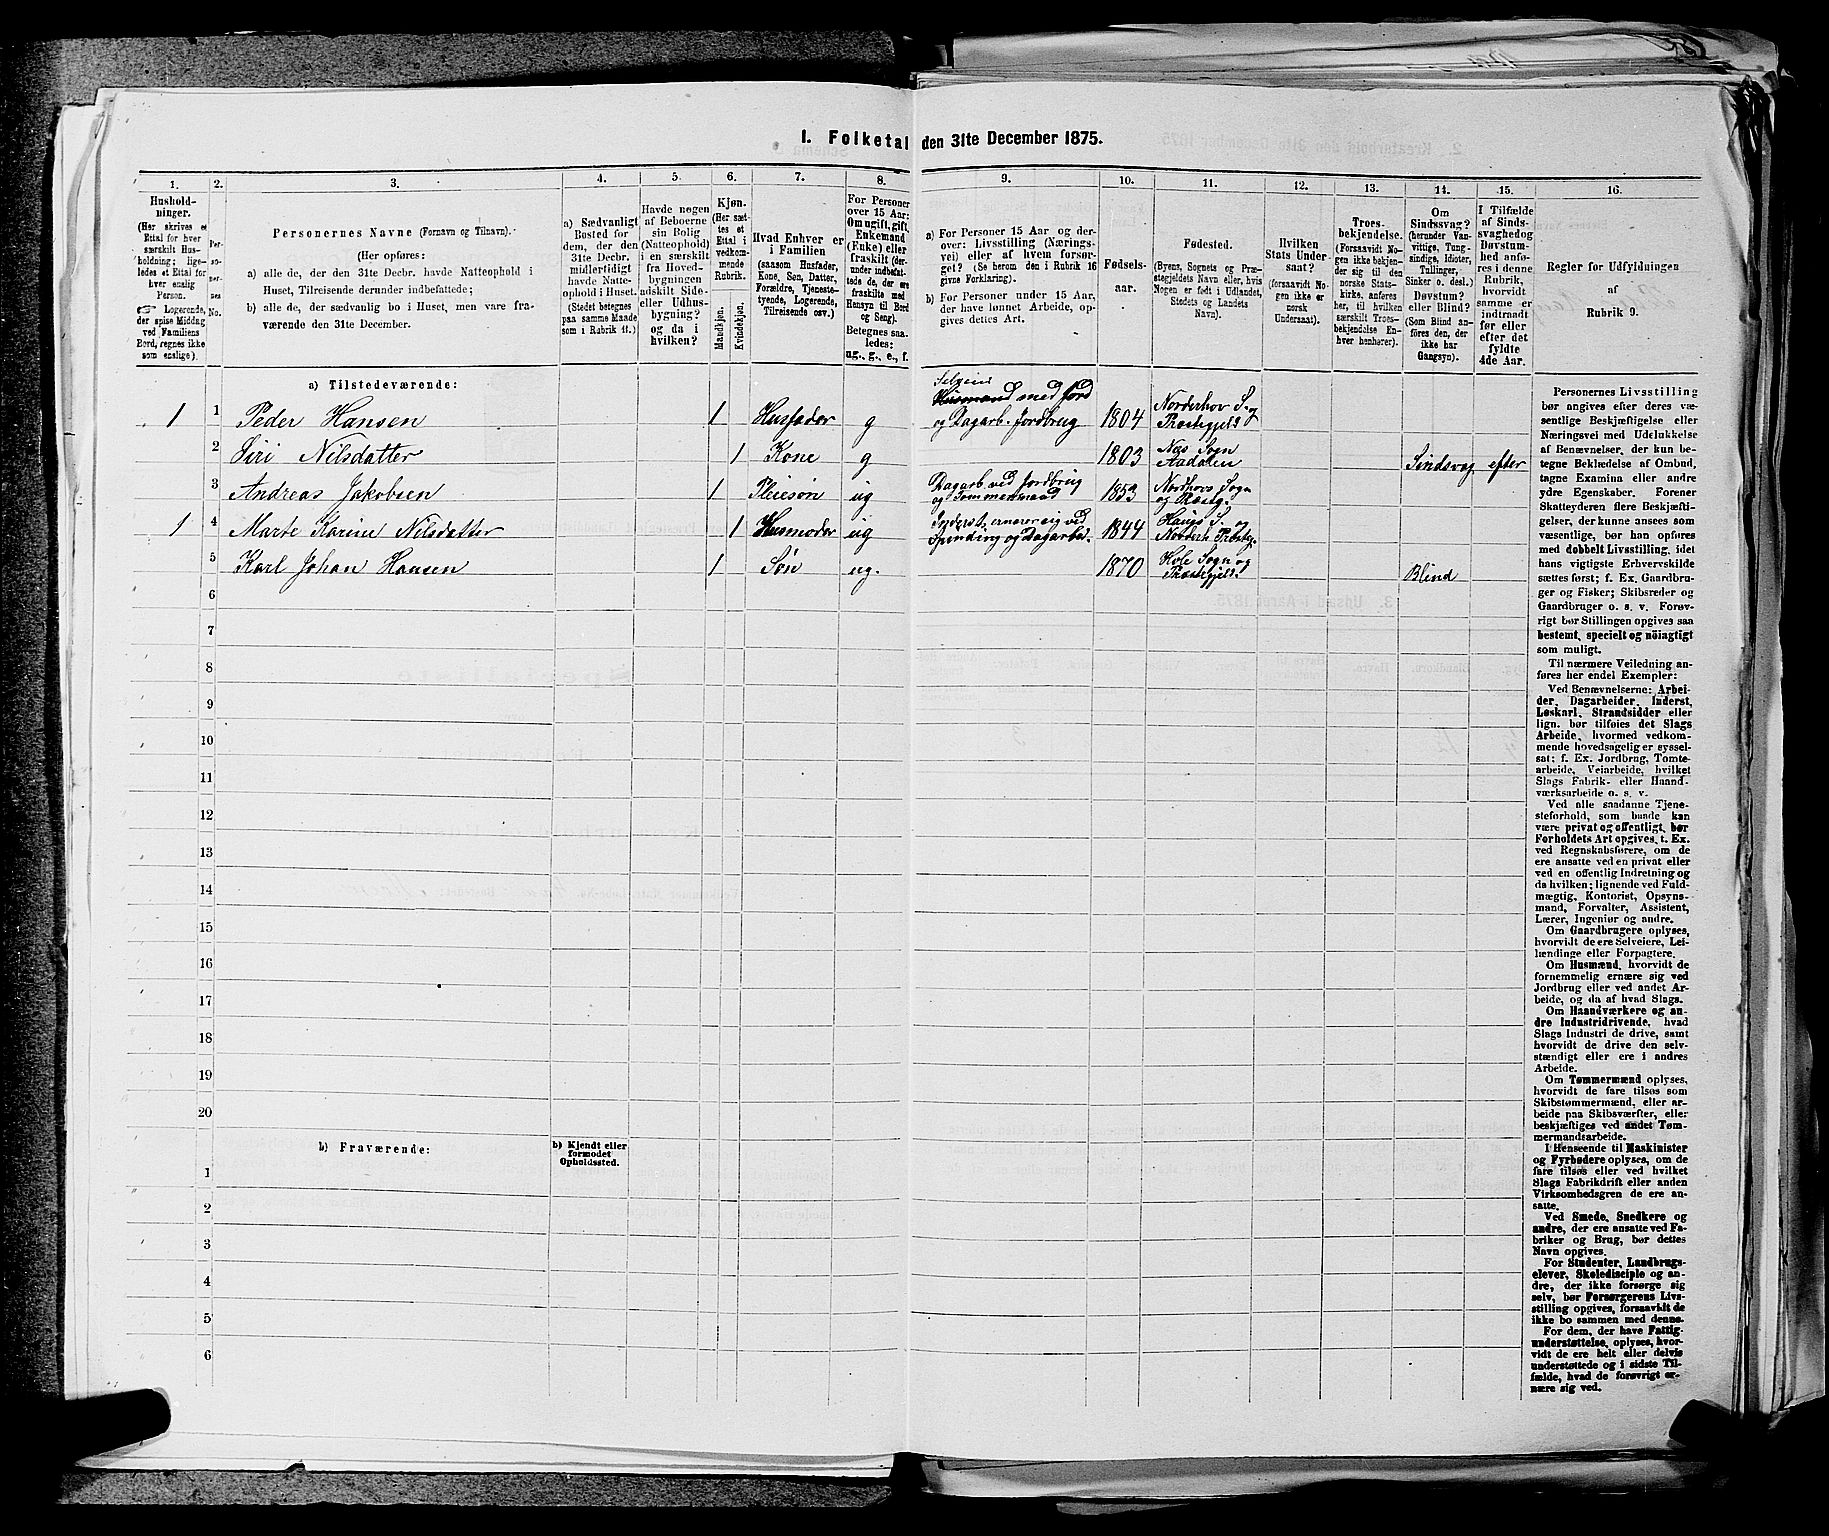 I. Folketal den 31te December 1875.
1.
Husholdninger.
(Her skrives et
Ettal for hver
særskilt Husholdning;
ligeledes et Ettal for
hver enslig
Person.
Logerende,
der spise Middag
ved Familiens
Bord, regnes ikke
som enslige).
2.
Personernes
No.
3.
Personernes Navne (Fornavn og Tilnavn).
(Her opføres:
a) alle de, der den 31te Decbr. havde Natteophold i
Huset, Tilreisende derunder indbefattede;
b) alle de, der sædvanlig bo i Huset, men vare fraværende
den 31te December.
4.
a) Sædvanligt
Bosted for
dem, der den
31te Decbr.
midlertidigt
havde Natteophold
i Huset.
(Stedet betegnes
paa samme Maade
som i Rubrik 11.)
5.
Havde nogen
af Beboerne
sin Bolig
(Natteophold)
i en særskilt
fra Hovedbygningen
adskilt Side-
eller Udhusbygning?
og da i
hvilken?
6.
Kjøn.
(Her sættes
et
Ettal i
vedkommende
Rubrik.
Mandkjøn.
Kvindekjøn.
7.
Hvad Enhver er
i Familien
(saasom Husfader,
Kone, Søn, Datter,
Forældre, Tjenestetyende,
Logerende,
Tilreisende osv.)
8.
For Personer
over 15 Aar:
Om ugift, gift,
Enkemand
(Enke) eller
fraskilt (derunder
indbefattede
de, der ere
fraskilte med
Hensyn til Bord
og Seng).
Betegnes saaledes:
ug., g., e., f.
9.
a) For Personer 15 Aar og derover:
Livsstilling (Næringsvei)
eller af hvem forsørget?
(Se herom den i Rubrik 16
givne Forklaring).
b) For Personer under 15 Aar,
der have lønnet Arbeide, opgives
dettes Art.
10.
Fødselsaar.
11.
Fødested.
(Byens, Sognets og Præstegjeldets
Navn eller, hvis
Nogen er født i Udlandet,
Stedets og Landets
Navn).
12.
Hvilken
Stats Undersaat?
(forsaavidt Nogen
ikke er
norsk
Undersaat).
13.
Troesbekjendelse.
(Forsaavidt Nogen
ikke bekjender
sig til den
norske Statskirke.
anføres
her, til hvilken
særskilt Troesbekjendelse
Enhver
henhører).
14.
Om
Sindssvag?
(herunder Vanvittige,
Tungsindige,
Idioter,
Tullinger,
Sinker o. desl.)
Døvstum?
eller Blind?
(Som Blind anføres
den, der
ikke har
Gangsyn).
15.
I Tilfælde
af Sindssvaghed
og
Døvstumhed
anføres
i denne
Rubrik,
hvorvidt
samme er
indtraadt
før eller
efter det
fyldte
4de Aar.
16.
Regler for Udfyldningen
af
Rubrik 9.
a) Tilstedeværende:
1 1 Peder Hansen 1 Husfader g Selveier Husmand med Jord og Dagarb. Jordbrug 1804 Norderhov S. og Præstegjeld
2 Siri Nilsdatter 1 Kone g 1803 Næs Sogn Aadalen Sindsvag efter
3 Andreas Jakobsen 1 Pleiesøn ug Dagarb. ved Jordbrug og Tømmermand 1853 Nordhovs Sogn og Præsteg.
1 4 Marte Karine Nilsdatter 1 Husmoder ug Inderst, ernærer sig ved Spinding og Dagarbei. 1844 Haugs S. Norderh. Præsteg.
5 Karl Johan Hansen 1 Søn ug. 1870 Hole Sogn og Præstegjeld. Blind
6
7
8
9
10
11
12
13
14
15
16
17
18
19
20
b) Fraværende:
b) Kjendt eller
formodet
Opholdssted.
1
2
3
4
5
6
Personernes Livsstilling
bør angives efter deres væsentlige
Beskjæftigelse eller
Næringsvei med Udelukkelse
af Benævnelser, der kun betegne
Beklædelse af Ombud,
tagne Examina eller andre
ydre Egenskaber. Forener
Skatteyderen flere Beskjæftigelser,
der kunne ansees som
væsentlige, bør han opføres
med dobbelt Livsstilling, idet
hans vigtigste Erhvervskilde
sættes først; f. Ex. Gaardbruger
og Fisker; Skibsreder og
Gaardbruger o. s. v. Forøvrigt
bør Stillingen opgives saa
bestemt, specielt og nöiagtigt
som muligt.
Til nærmere Veiledning anføres
her endel Exempler:
Ved Benævnelserne: Arbeider,
Dagarbeider, Inderst,
Løskarl, Strandsidder eller
lign. bør tilføies det Slags
Arbeide, hvormed vedkommende
hovedsagelig er sysselsat;
f. Ex. Jordbrug, Tomtearbeide,
Veiarbeide, hvilket
Slags Fabrik- eller Haandværksarbeide
o. s. v.
Ved alle saadanne Tjenesteforhold,
som baade kan
være privat og offentligt, bør
Forholdets Art opgives, t. Ex.
ved Regnskabsførere, om de
ere ansatte ved en privat eller
ved en offentlig Indretning og
da hvilken; lignende ved Fuldmægtig,
Kontorist, Opsynsmand,
Forvalter, Assistent,
Lærer, Ingeniør og andre.
Om Gaardbrugere oplyses,
hvorvidt de ere Selveiere, Leilændinge
eller Forpagtere.
Om Husmænd, hvorvidt de
fornemmelig ernære sig ved
Jordbrug eller ved andet Arbeide,
og da af hvad Slags.
Om Haandværkere og andre
Industridrivende, hvad
Slags Industri de drive, samt
hvorvidt de drive den selvstændigt
eller ere i andres
Arbeide.
Om Tømmermænd oplyses,
hvorvidt de fare tilsøs som
Skibstømmermænd, eller arbeide
paa Skibsværfter, eller
beskjæftiges ved andet Tømmermandsarbeide.
I Henseende til Maskinister
og Fyrbødere oplyses, om de
fare tilsøs eller ved hvilket
Slags Fabrikdrift eller anden
Virksomhedsgren de ere ansatte.
Ved Smede, Snedkere og
andre, der ere ansatte ved Fabriker
og Brug, bør dettes
Navn opgives.
For Studenter, Landbrugselever,
Skoledisciple og andre,
der ikke forsørge sig
selv, bør Forsørgerens Livsstilling
opgives, forsaavidt de
ikke bo sammen med denne.
For dem, der have Fattigunderstøttelse,
oplyses, hvorvidt
de ere helt eller delvis
understøttede og i sidste Tilfælde,
hvad de forøvrigt ernære
sig ved.